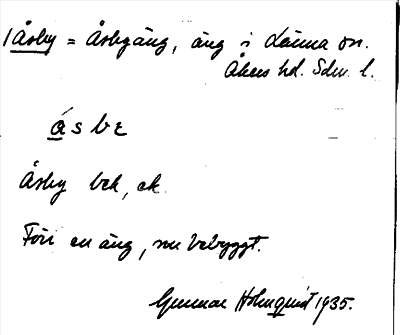 /Åsby = Åsbyäng, äng i Länna sn.
Åkers hd. Sdm. l.
á s b ɛ
Åsby bek, ek
Förr en äng, nu bebyggt.
Gunnar Holmquist 1935.